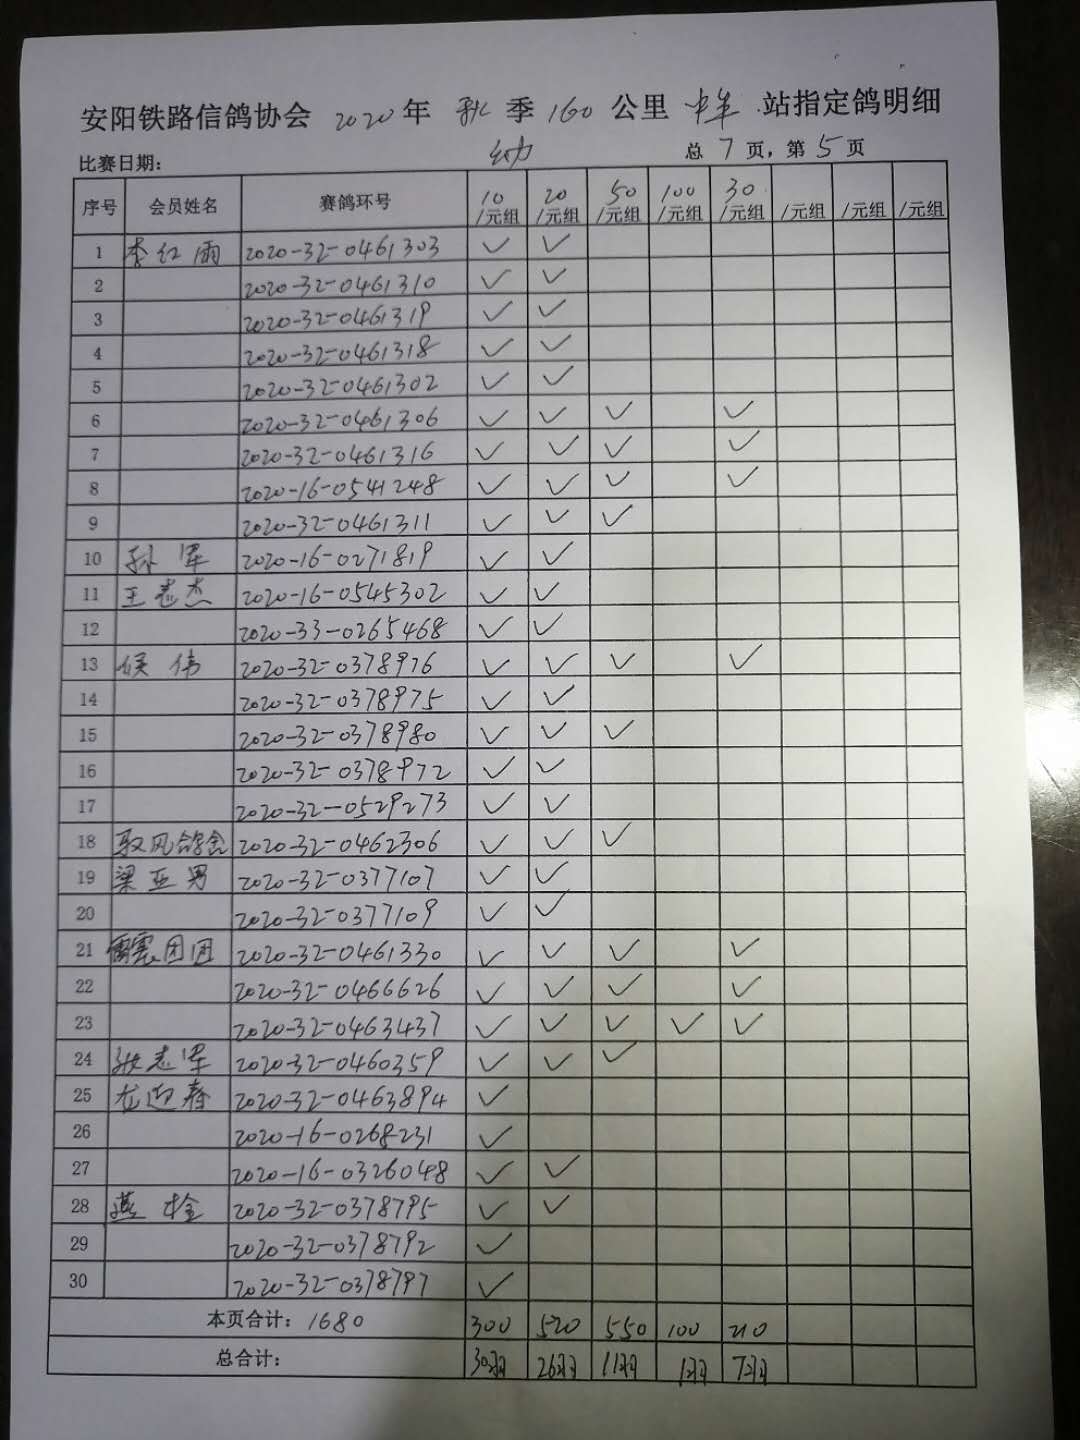 安阳铁路信鸽协会 2020 年 秋 季 160 公里 中牟 站指定鸽明细
比赛日期： 幼 总 7 页，第 5 页
序号 会员姓名 赛鸽环号 10/元组 20/元组 50/元组 100/元组 30/元组 /元组 /元组 /元组
1 李红雨 2020-32-0461303 ✓ ✓
2 2020-32-0461310 ✓ ✓
3 2020-32-0461319 ✓ ✓
4 2020-32-0461318 ✓ ✓
5 2020-32-0461302 ✓ ✓
6 2020-32-0461306 ✓ ✓ ✓ ✓
7 2020-32-0461316 ✓ ✓ ✓ ✓
8 2020-16-0541248 ✓ ✓ ✓ ✓
9 2020-32-0461311 ✓ ✓ ✓
10 孙军 2020-16-0271819 ✓ ✓
11 王志杰 2020-16-0545302 ✓ ✓
12 2020-33-0265468 ✓ ✓
13 侯伟 2020-32-0378976 ✓ ✓ ✓ ✓
14 2020-32-0378975 ✓ ✓
15 2020-32-0378980 ✓ ✓ ✓
16 2020-32-0378972 ✓ ✓
17 2020-32-0529273 ✓ ✓
18 驭风鸽舍 2020-32-0462306 ✓ ✓ ✓
19 梁亚男 2020-32-0377107 ✓ ✓
20 2020-32-0377109 ✓ ✓
21 雷震团团 2020-32-0461330 ✓ ✓ ✓ ✓
22 2020-32-0466626 ✓ ✓ ✓ ✓
23 2020-32-0463437 ✓ ✓ ✓ ✓ ✓
24 张志军 2020-32-0460359 ✓ ✓ ✓
25 尤迎春 2020-32-0463894 ✓
26 2020-16-0268231 ✓
27 2020-16-0326048 ✓ ✓
28 燕栓 2020-32-0378795 ✓ ✓
29 2020-32-0378792 ✓
30 2020-32-0378797 ✓
本页合计：1680 300 520 550 100 210
总合计： 30羽 26羽 11羽 1羽 7羽